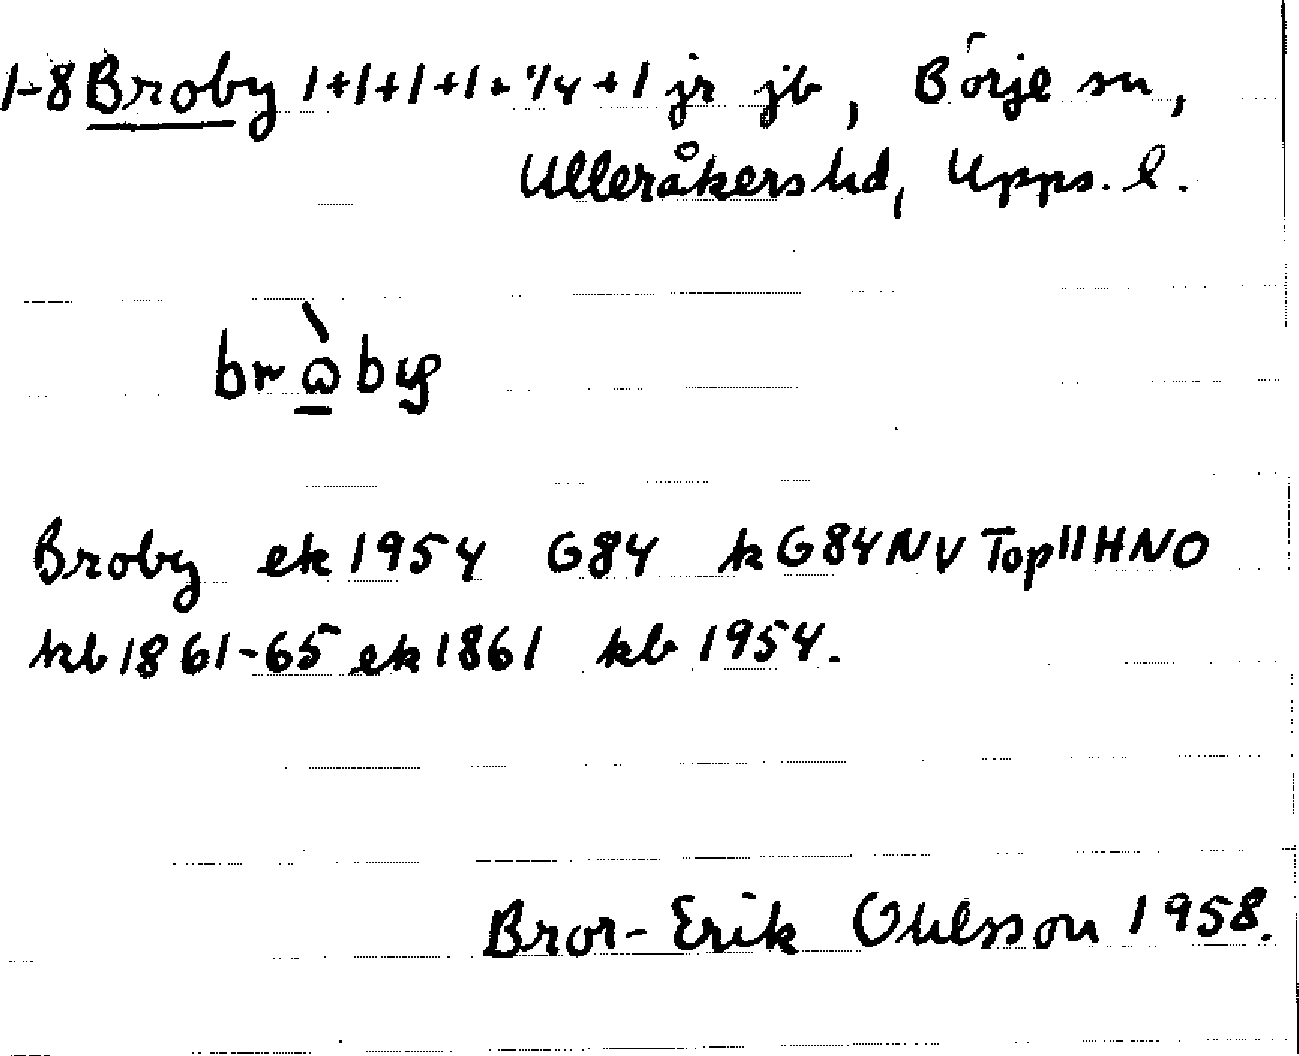 1-8 Broby 1+1+1+1+1/4+1 jr jb, Börje sn,
Ulleråkers hd, Upps. l.
bròby
Broby ek 1954 G84 k G84NV Top II HNO
kb 1861-65 ek 1861 kb 1954.
Bror-Erik Ohlsson 1958.